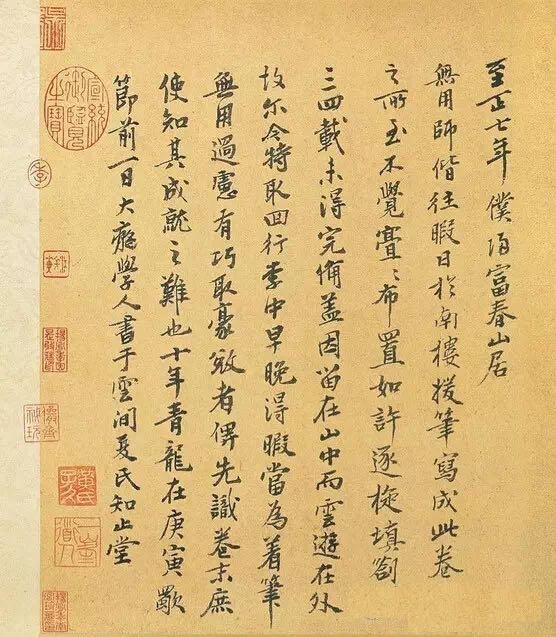 至正七年僕歸富春山居
無用師偕往暇日於南樓援筆寫成此卷
興之所至不覺亹〻布置如許逐旋填劄
三四載未得完備蓋因留在山中而雲遊在外
故尔今特取回行李中早晚得暇當為着筆
無用過慮有巧取豪敚者俾先識卷末庶
使知其成就之難也十年青龍在庚寅歜
節前一日大癡學人書于雲間夏氏知止堂
宣統御覽之寶